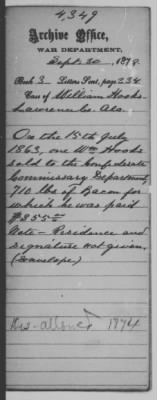 4,349
Archive Office,
WAR DEPARTMENT,
Sept. 30, 1878
Book 3 - Letters Sent, page 238
Case of William Hooks
Lawrence Co. Ala.
On the 15th July
1863, one Wm Hooks
sold to the Confederate
Commissary Department,
710 lbs of Bacon for
which he was paid
$355=
Note - Residence and
signature not given.
(Envelope.)
Dis-allowed 1874